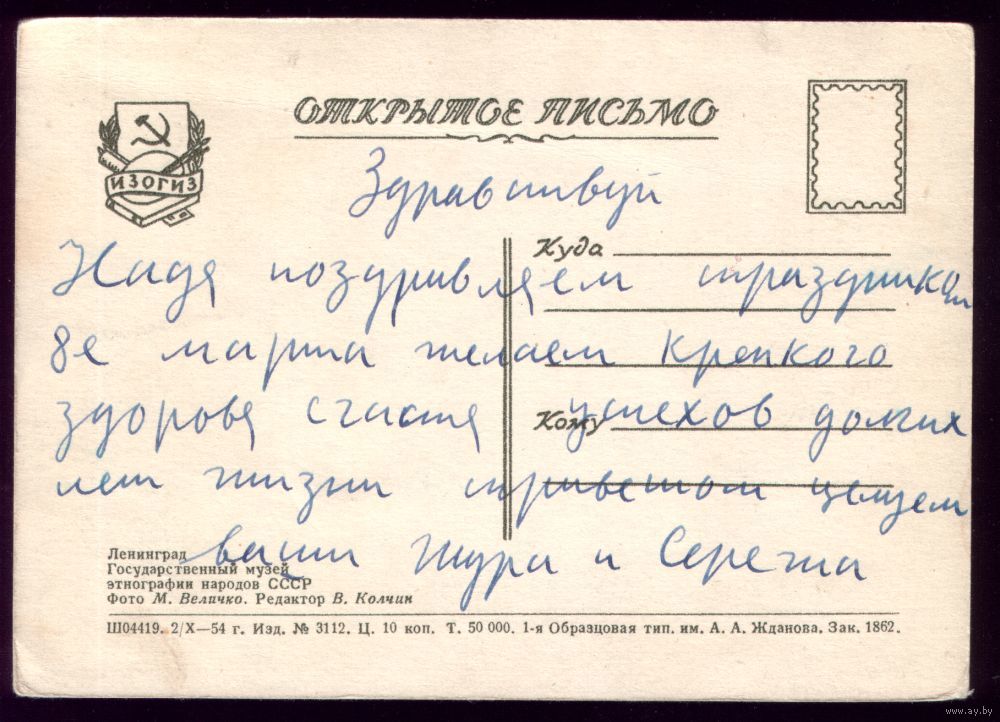 ОТКРЫТОЕ ПИСЬМО
ИЗОГИЗ
Здравствуй
Куда
Надя поздравляем праздником
8е марта желаем крепкого
здоровя счастя успехов долгих
Кому
лет жизни приветом целуем
ваши Шура и Сережа
Ленинград
Государственный музей
этнографии народов СССР
Фото М. Величко. Редактор В. Колчин
Ш04419. 2/X—54 г. Изд. № 3112. Ц. 10 коп. Т. 50 000. 1-я Образцовая тип. им. А. А. Жданова. Зак. 1862.
www.ay.by